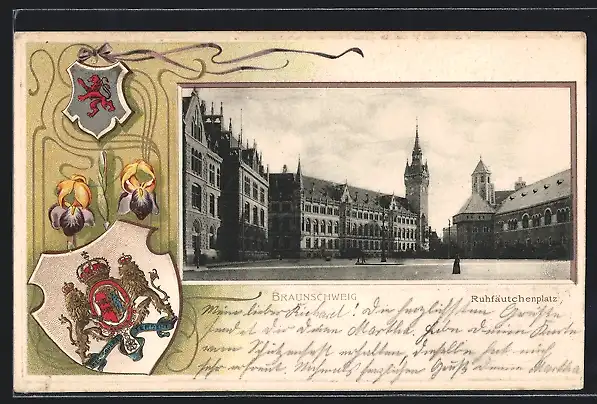 BRAUNSCHWEIG
Ruhfäutchenplatz
Mein lieber Richard! Die herzlichsten Grüße
sendet dir deine Martha. Habe deine Karte
vom Schützenfest erhalten, dieselbe hat mich
sehr erfreut. Nochmals herzlichen Gruß Deine Martha